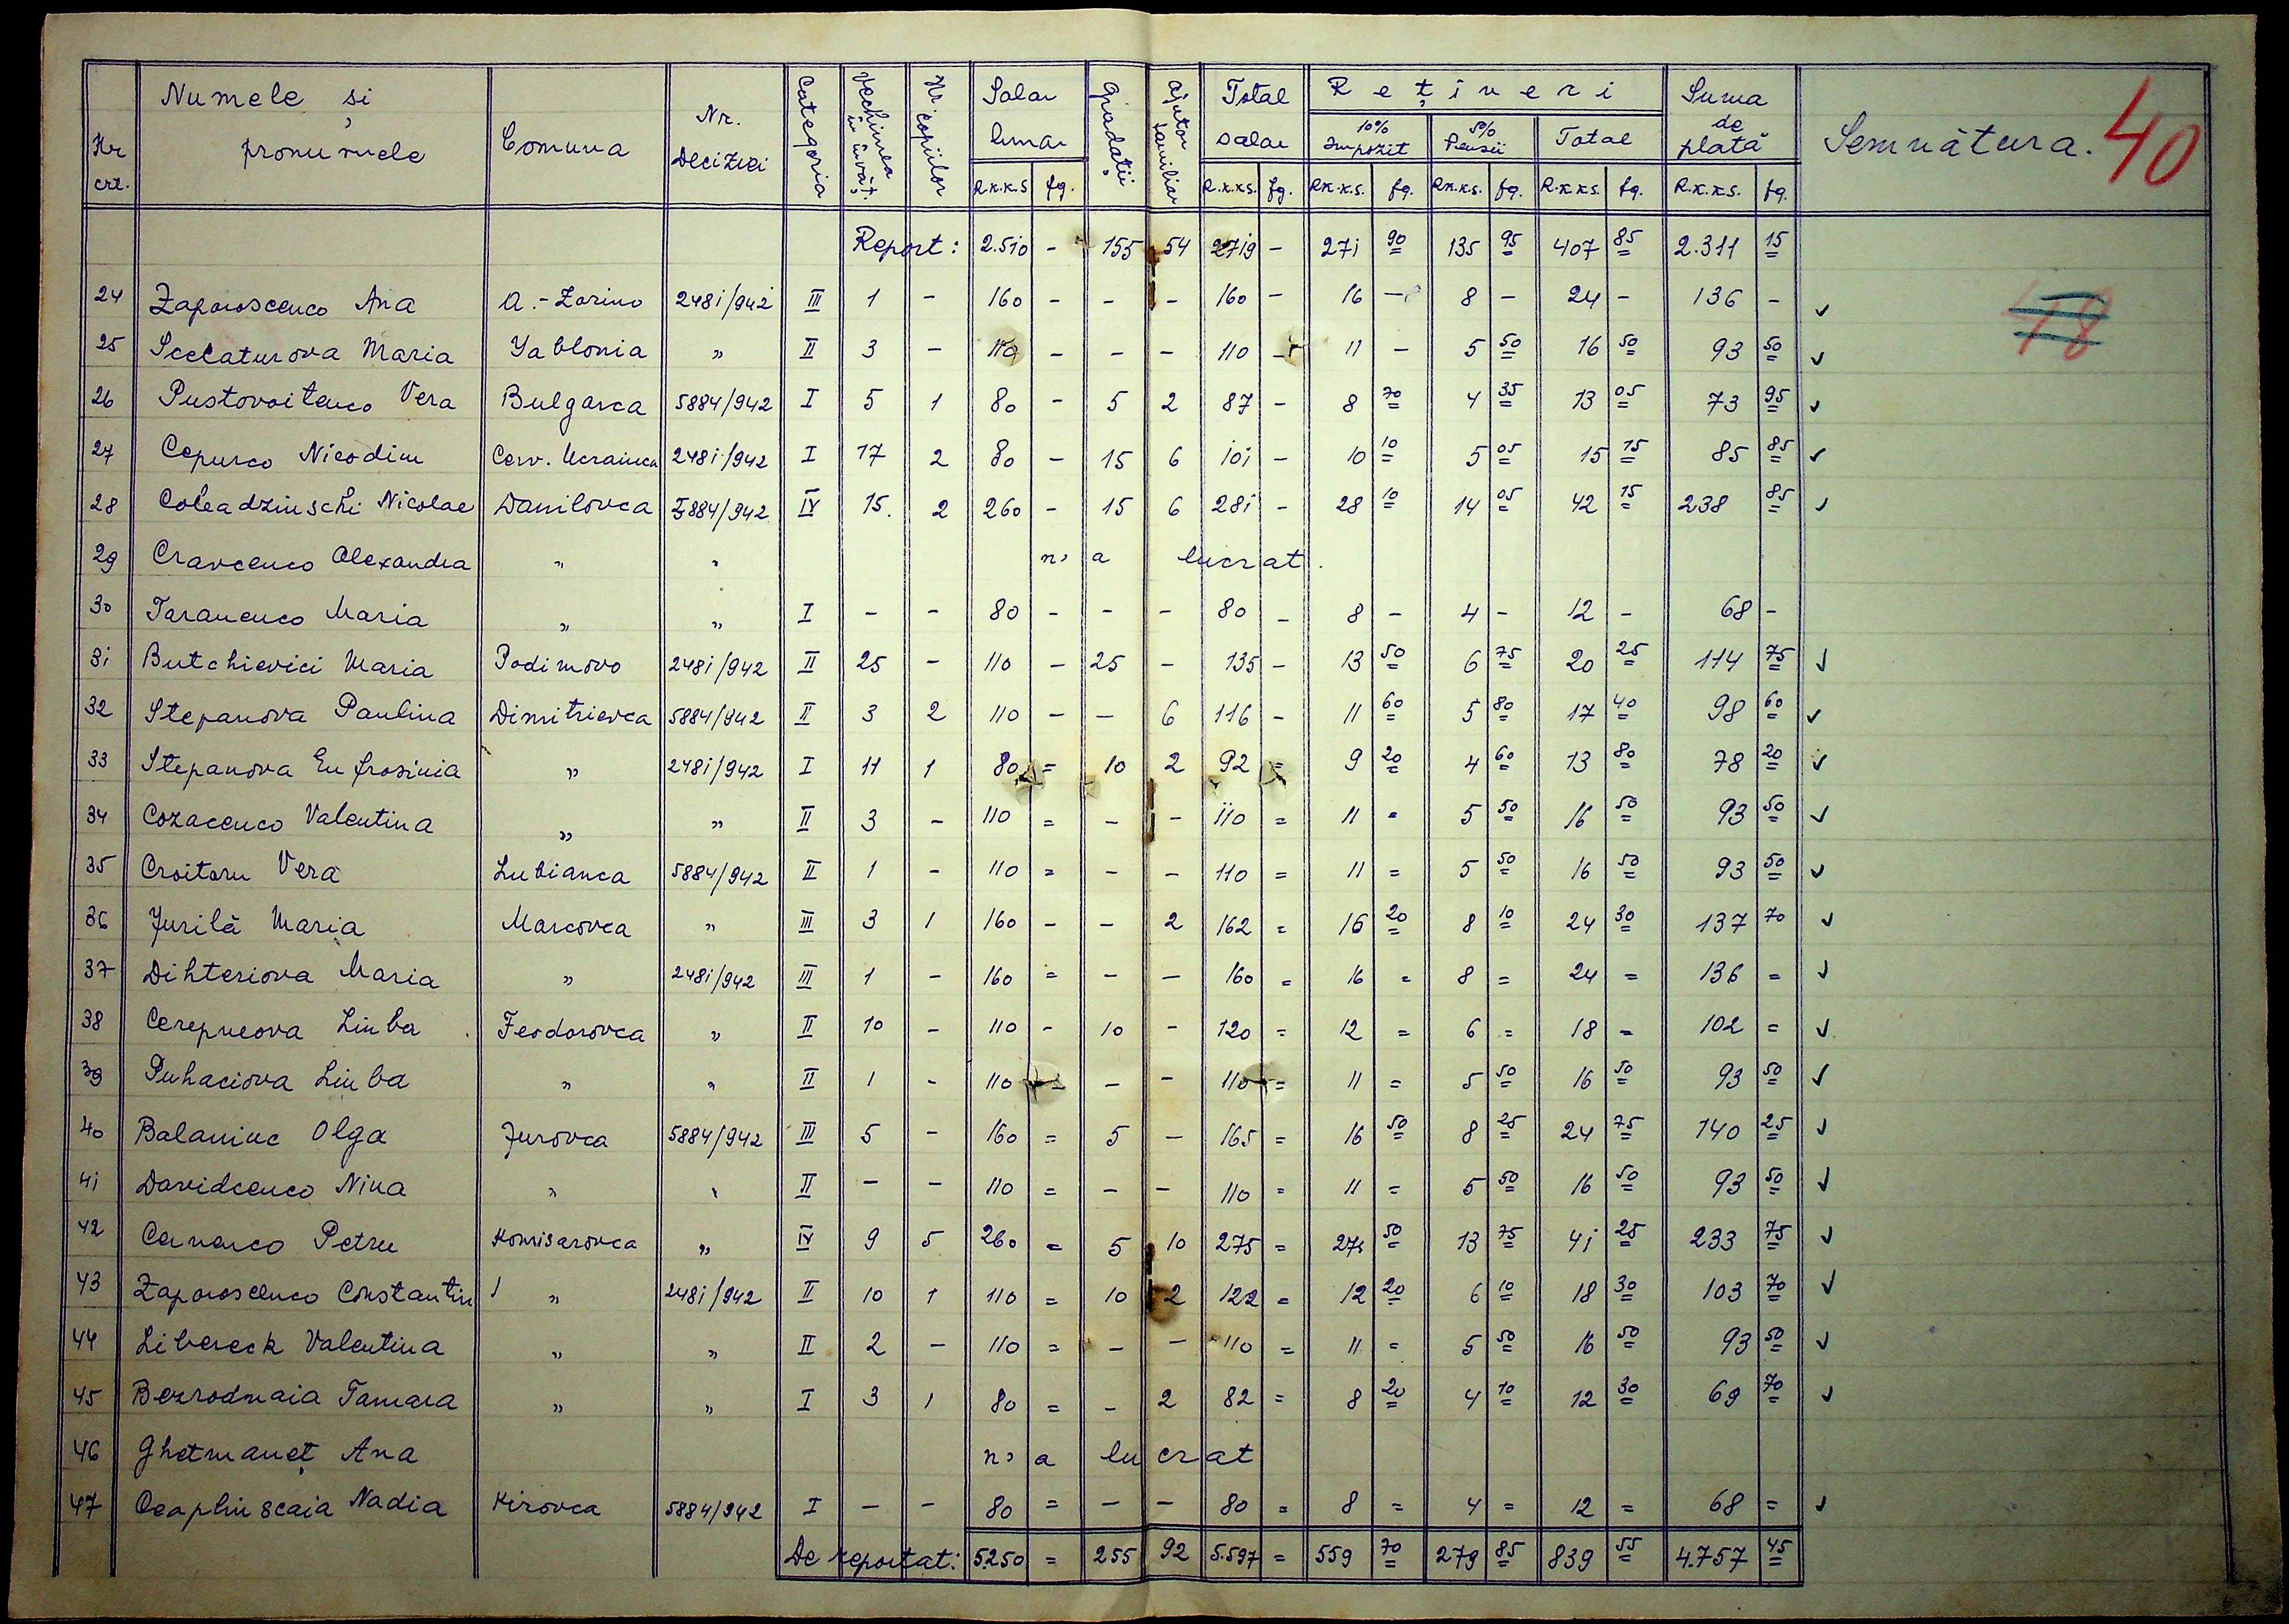 Numele și pronumele
Nr. crt.
Comuna
Nr. Deciziei
Categoria
Vechimea în învăț.
Nr. copiilor
Salar lunar
Gradații
Ajutor familiar
Total salar
Rețineri
10% Impozit
5% Pensii
Total
Suma de plată
Semnătura.
40
R.K.K.S fg. R.K.K.S. fg. R.K.K.S. fg. R.K.K.S. fg. R.K.K.S. fg. R.K.K.S. fg.
Report: 2.510 - 155 54 2719 - 271 90 135 95 407 85 2.311 15
78
24 Zaporoscenco Ana A.-Zorino 2481/942 III 1 - 160 - - - 160 - 16 - 8 - 24 - 136 - ✓
25 Scelaturova Maria Yablonia " II 3 - 110 - - - 110 - 11 - 5 50 16 50 93 50 ✓
26 Pustovoitenco Vera Bulgarca 5884/942 I 5 1 80 - 5 2 87 - 8 70 4 35 13 05 73 95 ✓
27 Cepurco Nicodim Cerv. Ucrainca 2481/942 I 17 2 80 - 15 6 101 - 10 10 5 05 15 15 85 85 ✓
28 Coleadzinschi Nicolae Danilovca 5884/942 IV 15. 2 260 - 15 6 281 - 28 10 14 05 42 15 238 85 ✓
29 Cravcenco Alexandra " " n'a lucrat.
30 Taranenco Maria " " I - - 80 - - - 80 - 8 - 4 - 12 - 68 -
31 Butchievici Maria Podimovo 2481/942 II 25 - 110 - 25 - 135 - 13 50 6 75 20 25 114 75 ✓
32 Stepanova Paulina Dimitrievca 5884/942 II 3 2 110 - - 6 116 - 11 60 5 80 17 40 98 60 ✓
33 Stepanova Eufrosinia " 2481/942 I 11 1 80 = 10 2 92 = 9 20 4 60 13 80 78 20 ✓
34 Cozacenco Valentina " " II 3 - 110 = - - 110 = 11 = 5 50 16 50 93 50 ✓
35 Croitoru Vera Lubianca 5884/942 II 1 - 110 = - - 110 = 11 = 5 50 16 50 93 50 ✓
36 Jurilă Maria Marcovca " III 3 1 160 - - 2 162 = 16 20 8 10 24 30 137 70 ✓
37 Dihteriova Maria " 2481/942 III 1 - 160 = - - 160 = 16 = 8 = 24 = 136 = ✓
38 Cerepneova Liuba Feodorovca " II 10 - 110 - 10 - 120 = 12 = 6 = 18 = 102 = ✓
39 Puhaciova Liuba " " II 1 - 110 = - - 110 = 11 = 5 50 16 50 93 50 ✓
40 Balaniuc Olga Jurovca 5884/942 III 5 - 160 = 5 - 165 = 16 50 8 25 24 75 140 25 ✓
41 Davidcenco Nina " " II - - 110 = - - 110 = 11 = 5 50 16 50 93 50 ✓
42 Cernenco Petru Komisarovca " IV 9 5 260 = 5 10 275 = 27 50 13 75 41 25 233 75 ✓
43 Zaporoscenco Constantin " 2481/942 II 10 1 110 = 10 2 122 = 12 20 6 10 18 30 103 70 ✓
44 Libereck Valentina " " II 2 - 110 = - - 110 = 11 = 5 50 16 50 93 50 ✓
45 Bezrodnaia Tamara " " I 3 1 80 = - 2 82 = 8 20 4 10 12 30 69 70 ✓
46 Ghetmaneț Ana n'a lucrat
47 Ocaplinscaia Nadia Kirovca 5884/942 I - - 80 = - - 80 = 8 = 4 = 12 = 68 = ✓
De reportat: 5.250 = 255 92 5.597 = 559 70 279 85 839 55 4.757 45